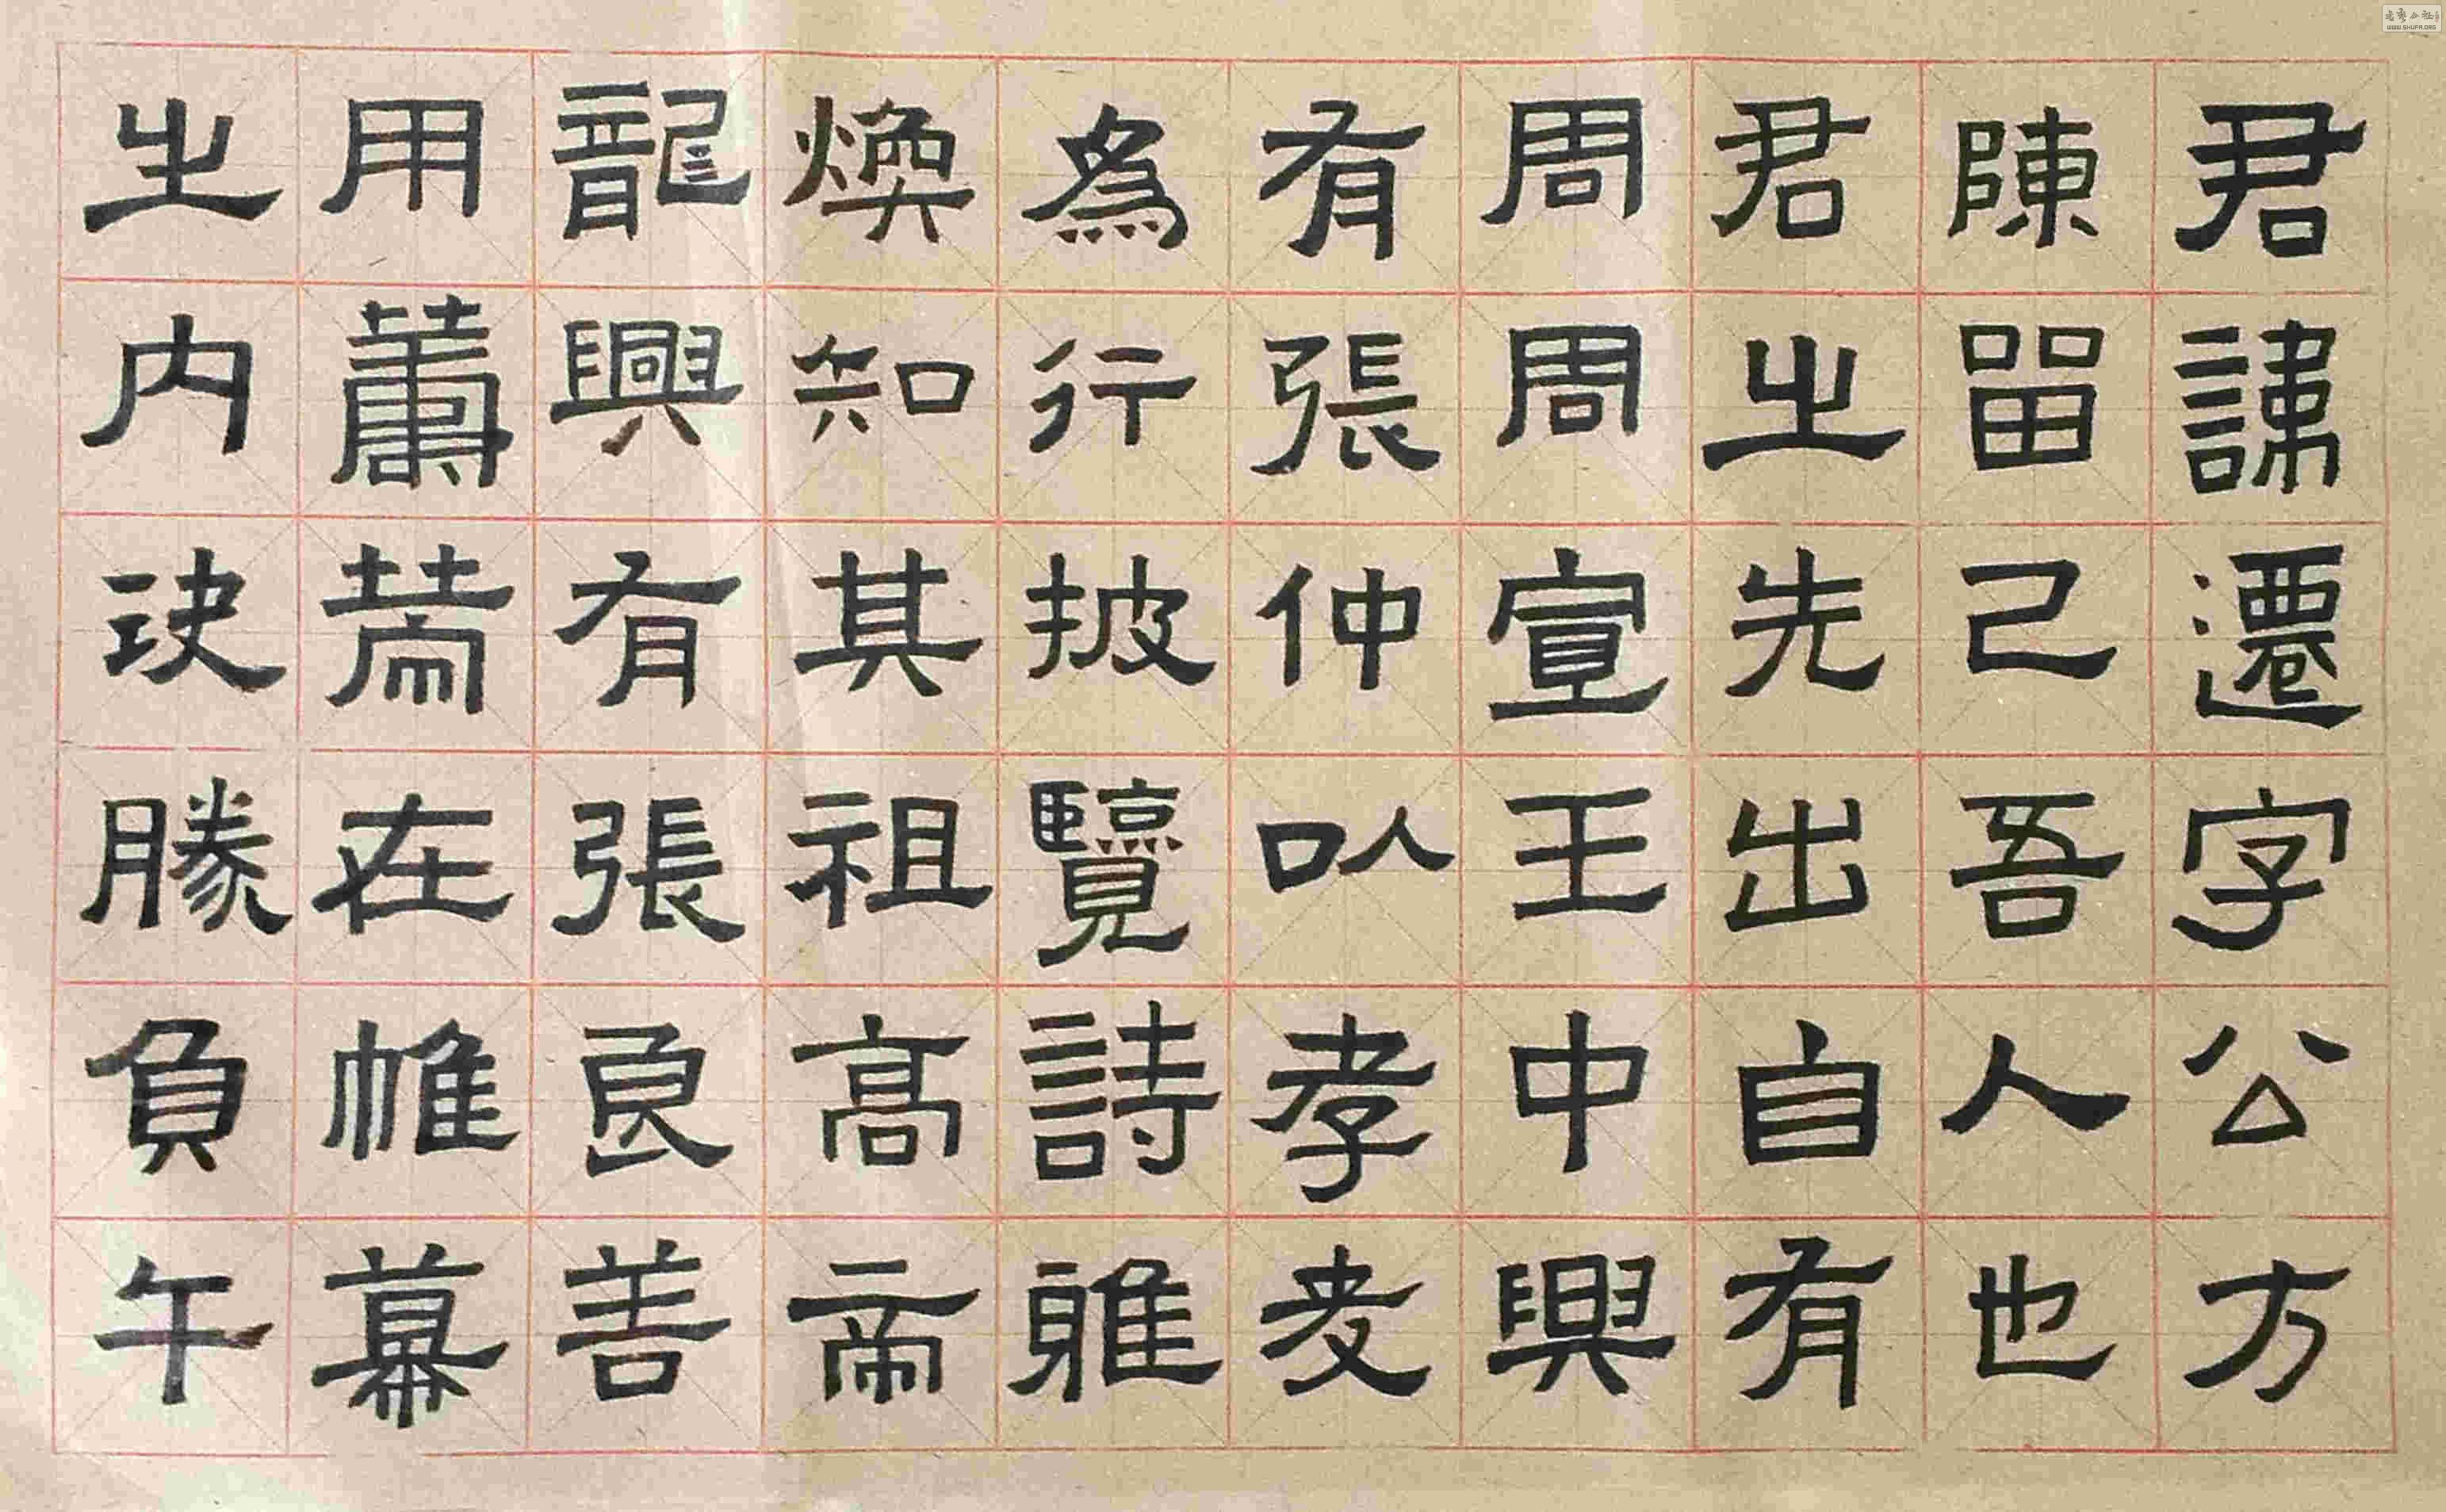 君諱遷字公方
陳留己吾人也
君之先出自有
周周宣王中興
有張仲以孝友
為行披覽詩雅
煥知其祖高帝
龍興有張良善
用籌策在帷幕
之内決勝負千
WWW.SHUFA.ORG